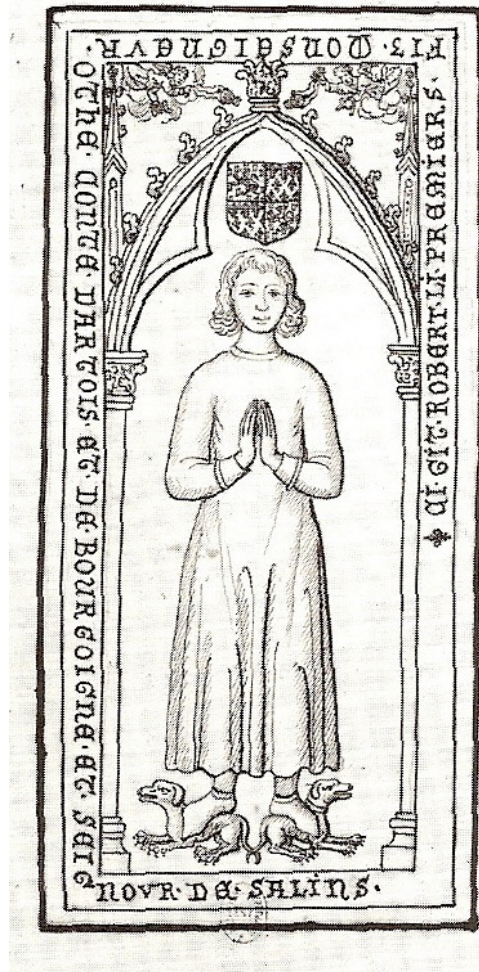 ✤ CI·GIT·ROBERT·LI·PREMIERS·
FIZ·MONSEIGNEVR·
OTHE·CONTE·DARTOIS·ET·DE·BOURGOIGNE·ET·SEIG
NOVR·DE·SALINS·